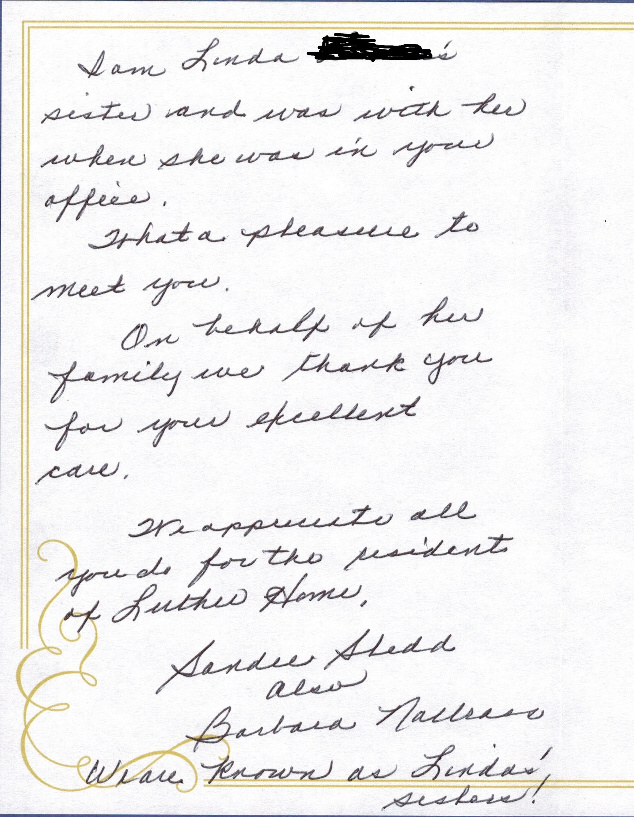 I am Linda 's
sister and was with her
when she was in your
office.
What a pleasure to
meet you.
On behalf of her
family we thank you
for your excellent
care.
We appreciate all
you do for the residents
of Luther Home.
Sandee Shedd
also
Barbara
We are known as Lindas'
sisters!